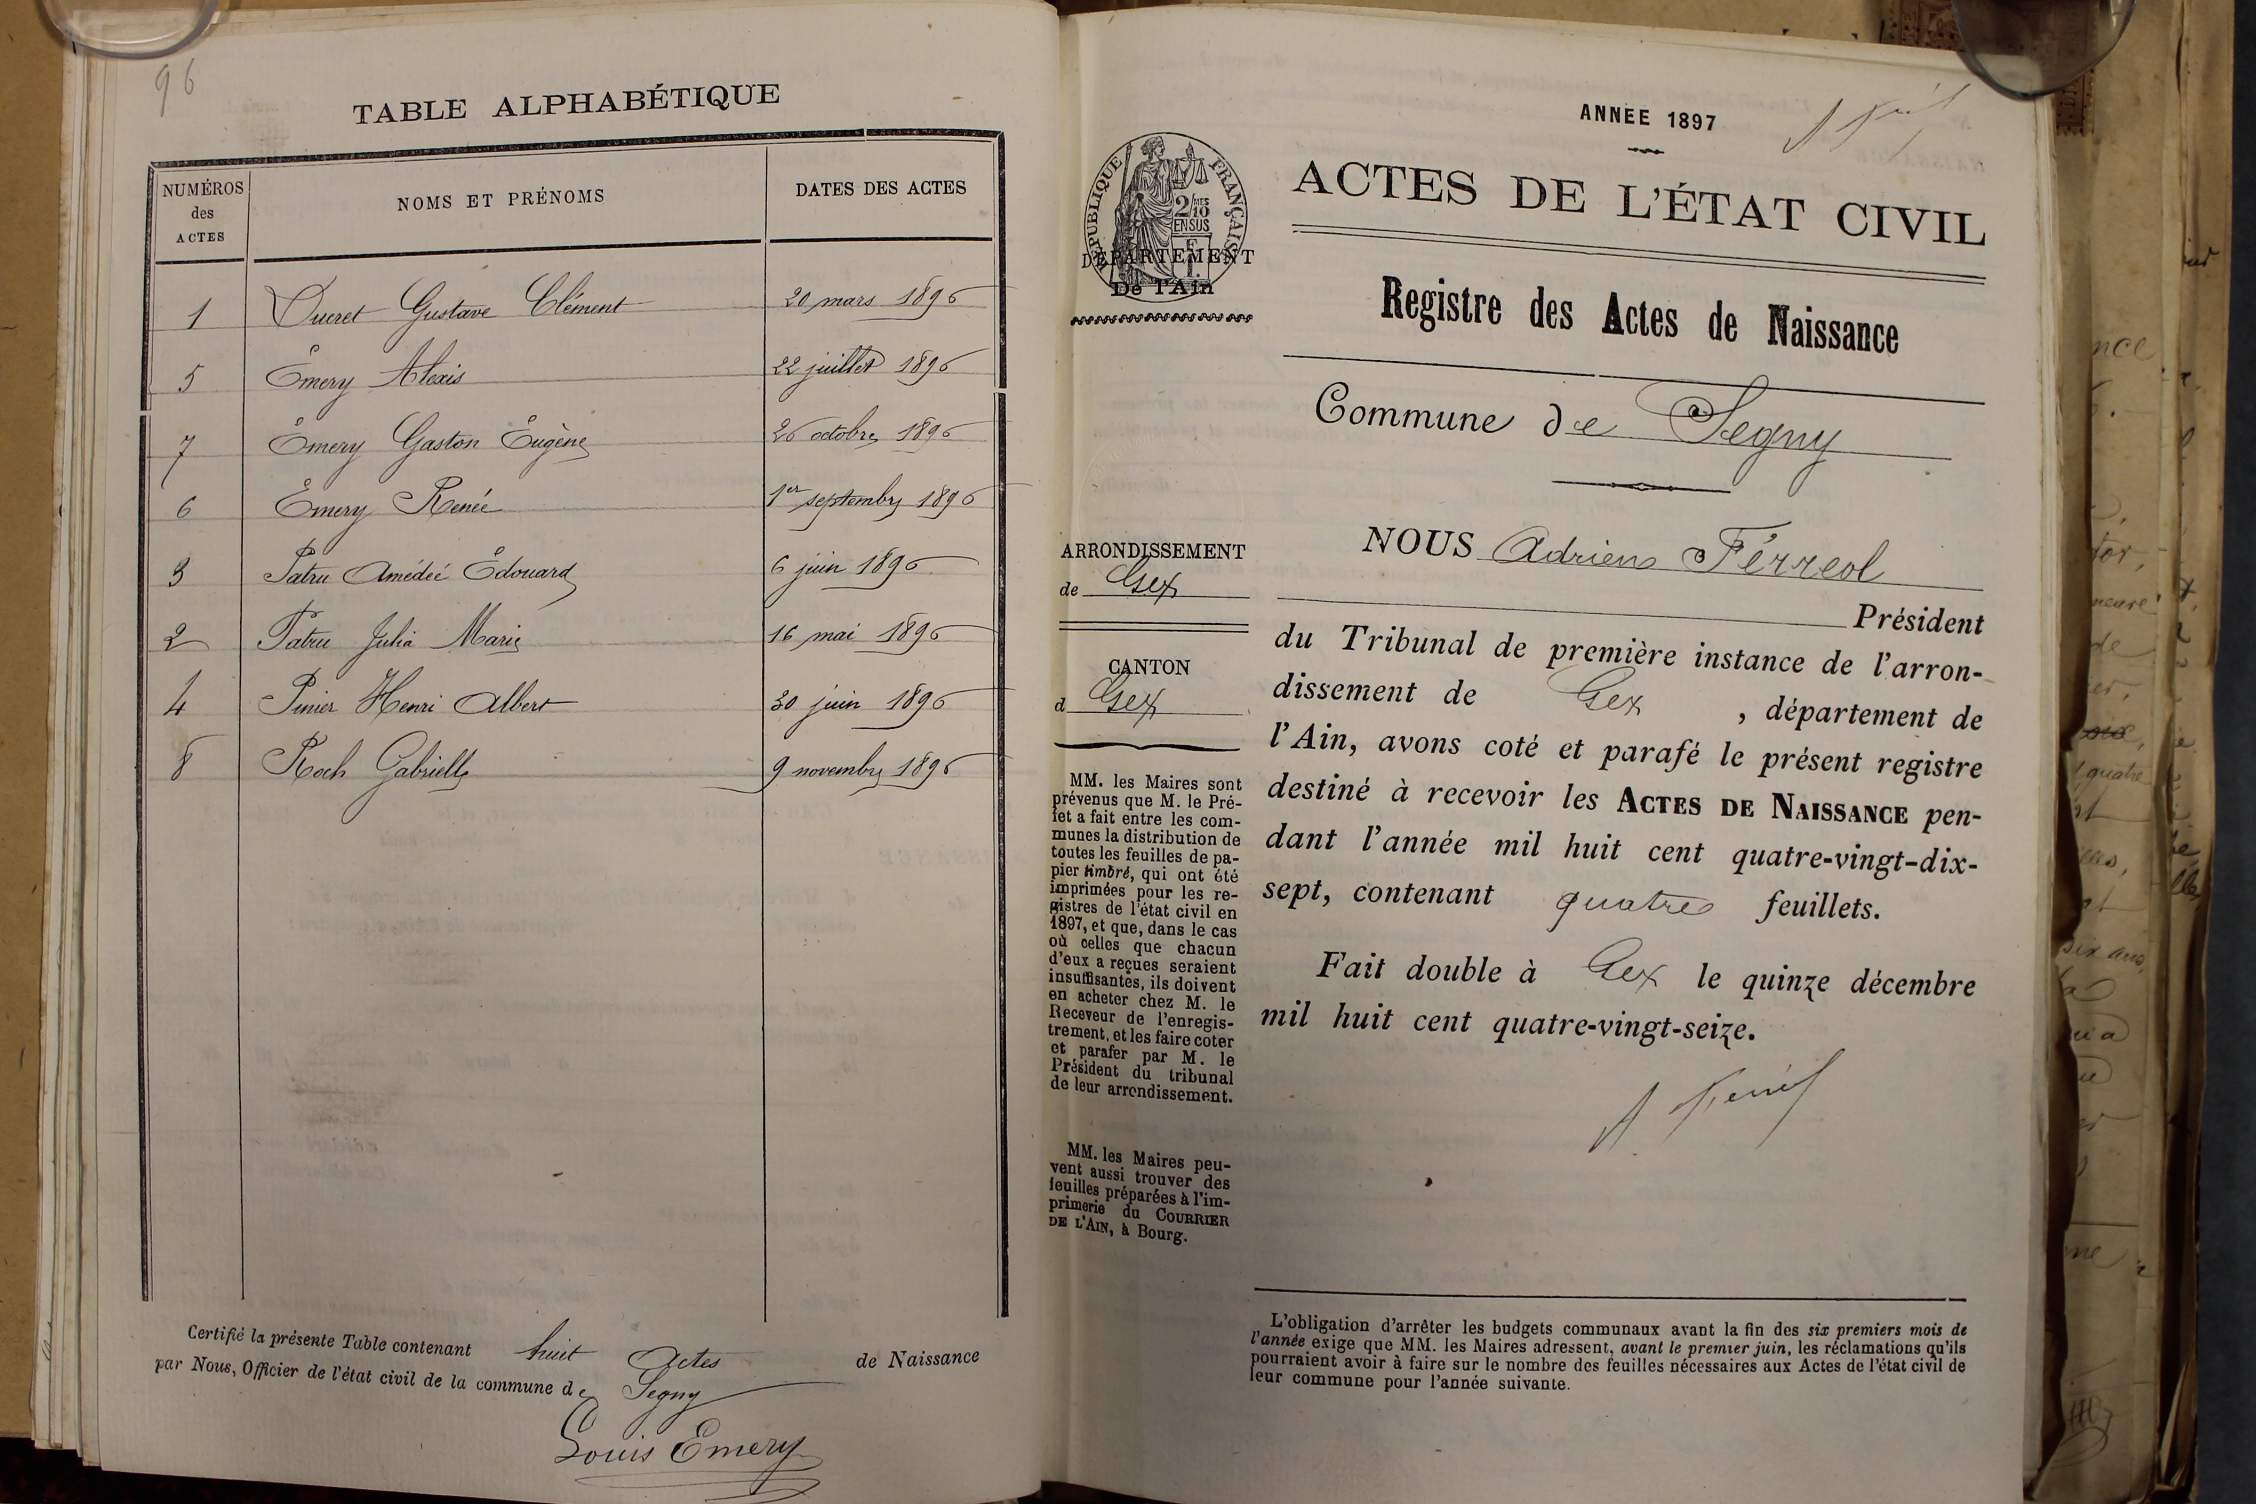 96
TABLE ALPHABÉTIQUE
NUMÉROS des ACTES
NOMS ET PRÉNOMS
DATES DES ACTES
1 Ducret Gustave Clément 20 mars 1896
5 Émery Alexis 22 juillet 1896
7 Émery Gaston Eugène 26 octobre 1896
6 Émery Renée 1er septembre 1896
3 Patru Amédée Édouard 6 juin 1896
2 Patru Julia Marie 16 mai 1896
4 Pinier Henri Albert 30 juin 1896
8 Roch Gabrielle 9 novembre 1896
Certifié la présente Table contenant huit Actes de Naissance
par Nous, Officier de l'état civil de la commune de Segny
Louis Emery
ANNÉE 1897
RÉPUBLIQUE FRANÇAISE
2/10 MES
EN SUS
DÉPARTEMENT
De l'Ain
ACTES DE L'ÉTAT CIVIL
Registre des Actes de Naissance
Commune de Segny
ARRONDISSEMENT
de Gex
CANTON
d Gex
MM. les Maires sont
prévenus que M. le Pré-
fet a fait entre les com-
munes la distribution de
toutes les feuilles de pa-
pier timbré, qui ont été
imprimées pour les re-
gistres de l'état civil en
1897, et que, dans le cas
où celles que chacun
d'eux a reçues seraient
insuffisantes, ils doivent
en acheter chez M. le
Receveur de l'enregis-
trement, et les faire coter
et parafer par M. le
Président du tribunal
de leur arrondissement.
MM. les Maires peu-
vent aussi trouver des
feuilles préparées à l'im-
primerie du COURRIER
DE L'AIN, à Bourg.
NOUS Adrien Férreol
Président
du Tribunal de première instance de l'arron-
dissement de Gex, département de
l'Ain, avons coté et parafé le présent registre
destiné à recevoir les ACTES DE NAISSANCE pen-
dant l'année mil huit cent quatre-vingt-dix-
sept, contenant quatre feuillets.
Fait double à Gex le quinze décembre
mil huit cent quatre-vingt-seize.
L'obligation d'arrêter les budgets communaux avant la fin des six premiers mois de
l'année exige que MM. les Maires adressent, avant le premier juin, les réclamations qu'ils
pourraient avoir à faire sur le nombre des feuilles nécessaires aux Actes de l'état civil de
leur commune pour l'année suivante.